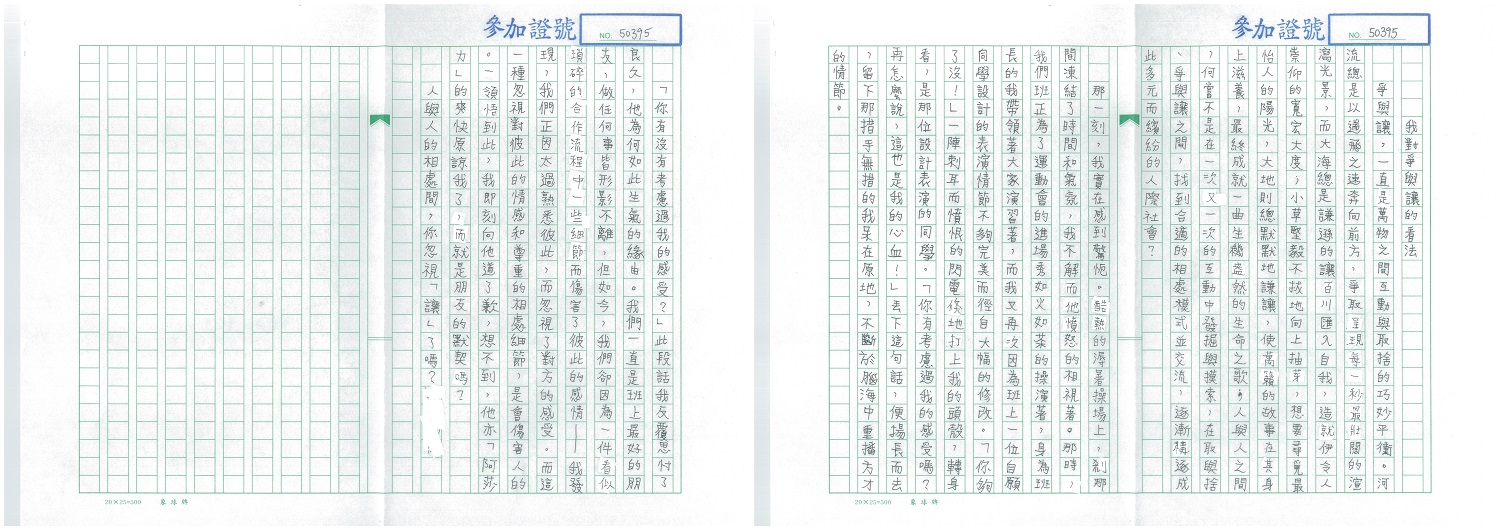 參加證號 NO. 50395
我對爭與讓的看法
爭與讓,一直是萬物之間互動與取捨的巧妙平衡。河
流總是以遄飛之速奔向前方,爭取呈現每一秒最壯闊的渲
瀉光景,而大海總是謙遜的讓百川匯入自我,造就伊令人
崇仰的寬宏大度,小草堅毅不拔地向上抽芽,想要尋覓最
怡人的陽光,大地則總默默地謙讓,使萬籟的故事在其身
上滋養,最終成就一曲生機盎然的生命之歌,人與人之間
,何嘗不是在一次又一次的互動中發掘與摸索,在取與捨
、爭與讓之間,找到合適的相處模式並交流,逐漸積逐成
此多元而繽紛的人際社會?
那一刻,我實在感到驚恐。酷熱的溽暑操場上,剎那
間凍結了時間和氣氛,我不解而他憤怒的相視著。那時,
我們班正為了運動會的進場秀如火如荼的操演著,身為班
長的我帶領著大家演習著,而我又再次因為班上一位自願
同學設計的表演情節不夠完美而徑自大幅的修改。「你夠
了沒!」一陣刺耳而憤恨的閃電倏地打上我的頭殼,轉身
看,是那位設計表演的同學。「你有考慮過我的感受嗎?
再怎麼說,這也是我的心血!」丟下這句話,便揚長而去
,留下那措手無措的我呆在原地,不斷於腦海中重播方才
的情節。
20×25=500 象球牌
參加證號 NO. 50395
「你有沒有考慮過我的感受?」此段話我反覆思忖了
良久,他為何如此生氣的緣由。我們一直是班上最好的朋
友,做任何事皆形影不離,但如今,我們卻因為一件看似
瑣碎的合作流程中一些細節而傷害了彼此的感情——我發
現,我們正因太過熟悉彼此,而忽視了對方的感受。而這
一種忽視對彼此的情感和尊重的相處細節,是會傷害人的
。一領悟到此,我即刻向他道了歉,想不到,他亦「阿莎
力」的爽快原諒我了,而就是朋友的默契嗎?
人與人的相處間,你忽視「讓」了嗎?
20×25=500 象球牌